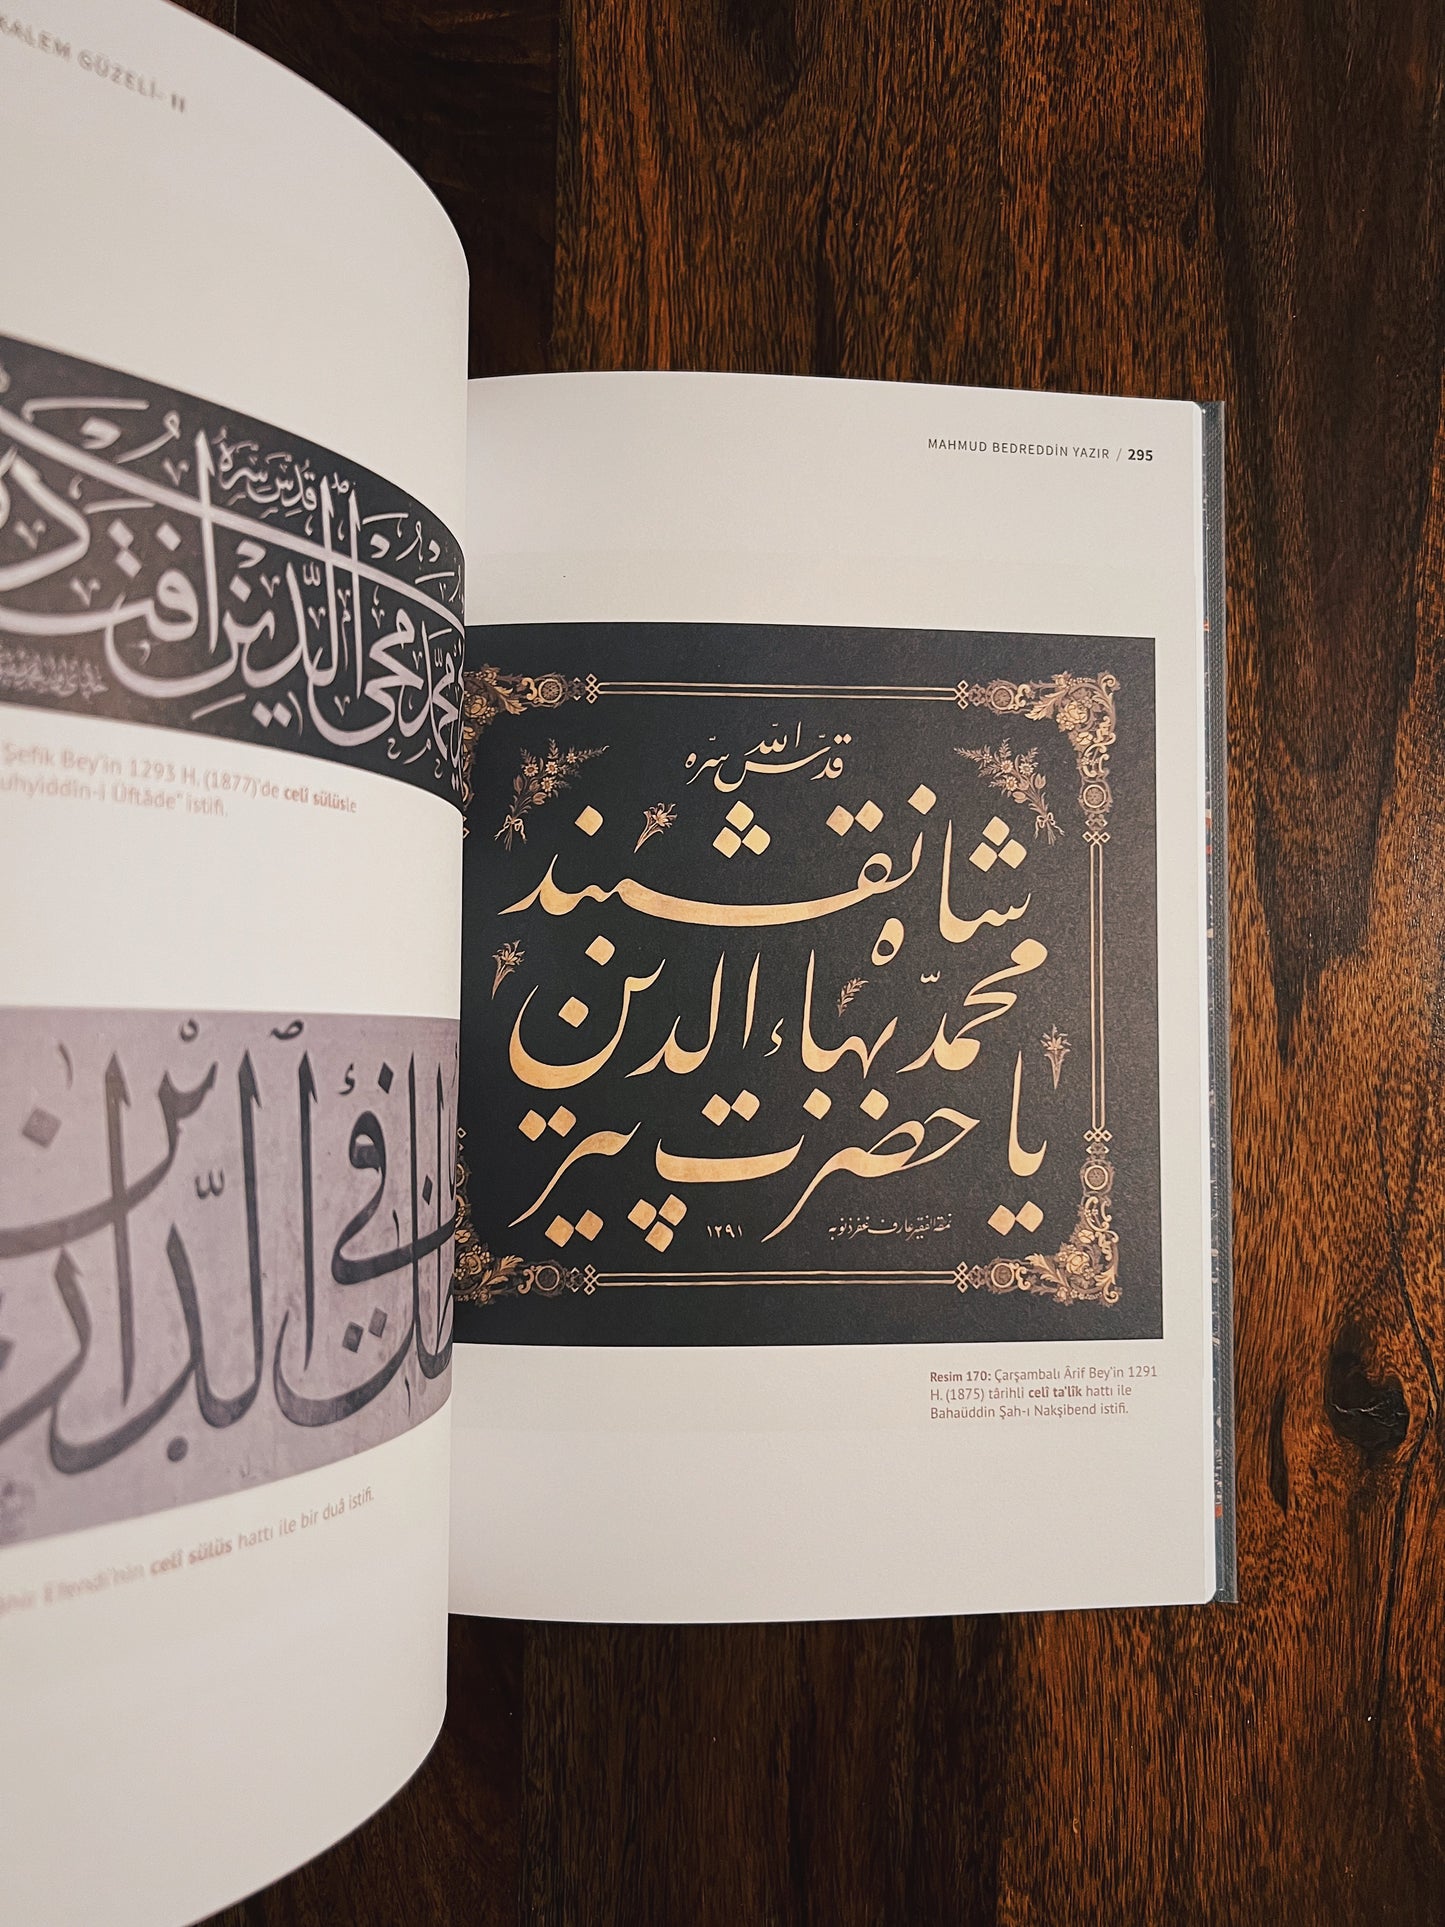 KALEM GÜZELİ- II
قُدِّسَ سِرُّهُ
محمّد محيى الدّين افتاده
Şefik Bey'in 1293 H. (1877)'de celî sülüsle
uhyiddîn-i Üftâde" istifi.
فى الدّارين
Efendi'nin celî sülüs hattı ile bir duâ istifi.
MAHMUD BEDREDDİN YAZIR / 295
قدّس الله سرّه
شاه نقشبند
محمّد بهاء الدين
يا حضرت پير
نمقه الفقير عارف غفر ذنوبه ١٢٩١
Resim 170: Çarşambalı Ârif Bey'in 1291
H. (1875) târihli celî ta'lîk hattı ile
Bahaüddin Şah-ı Nakşibend istifi.